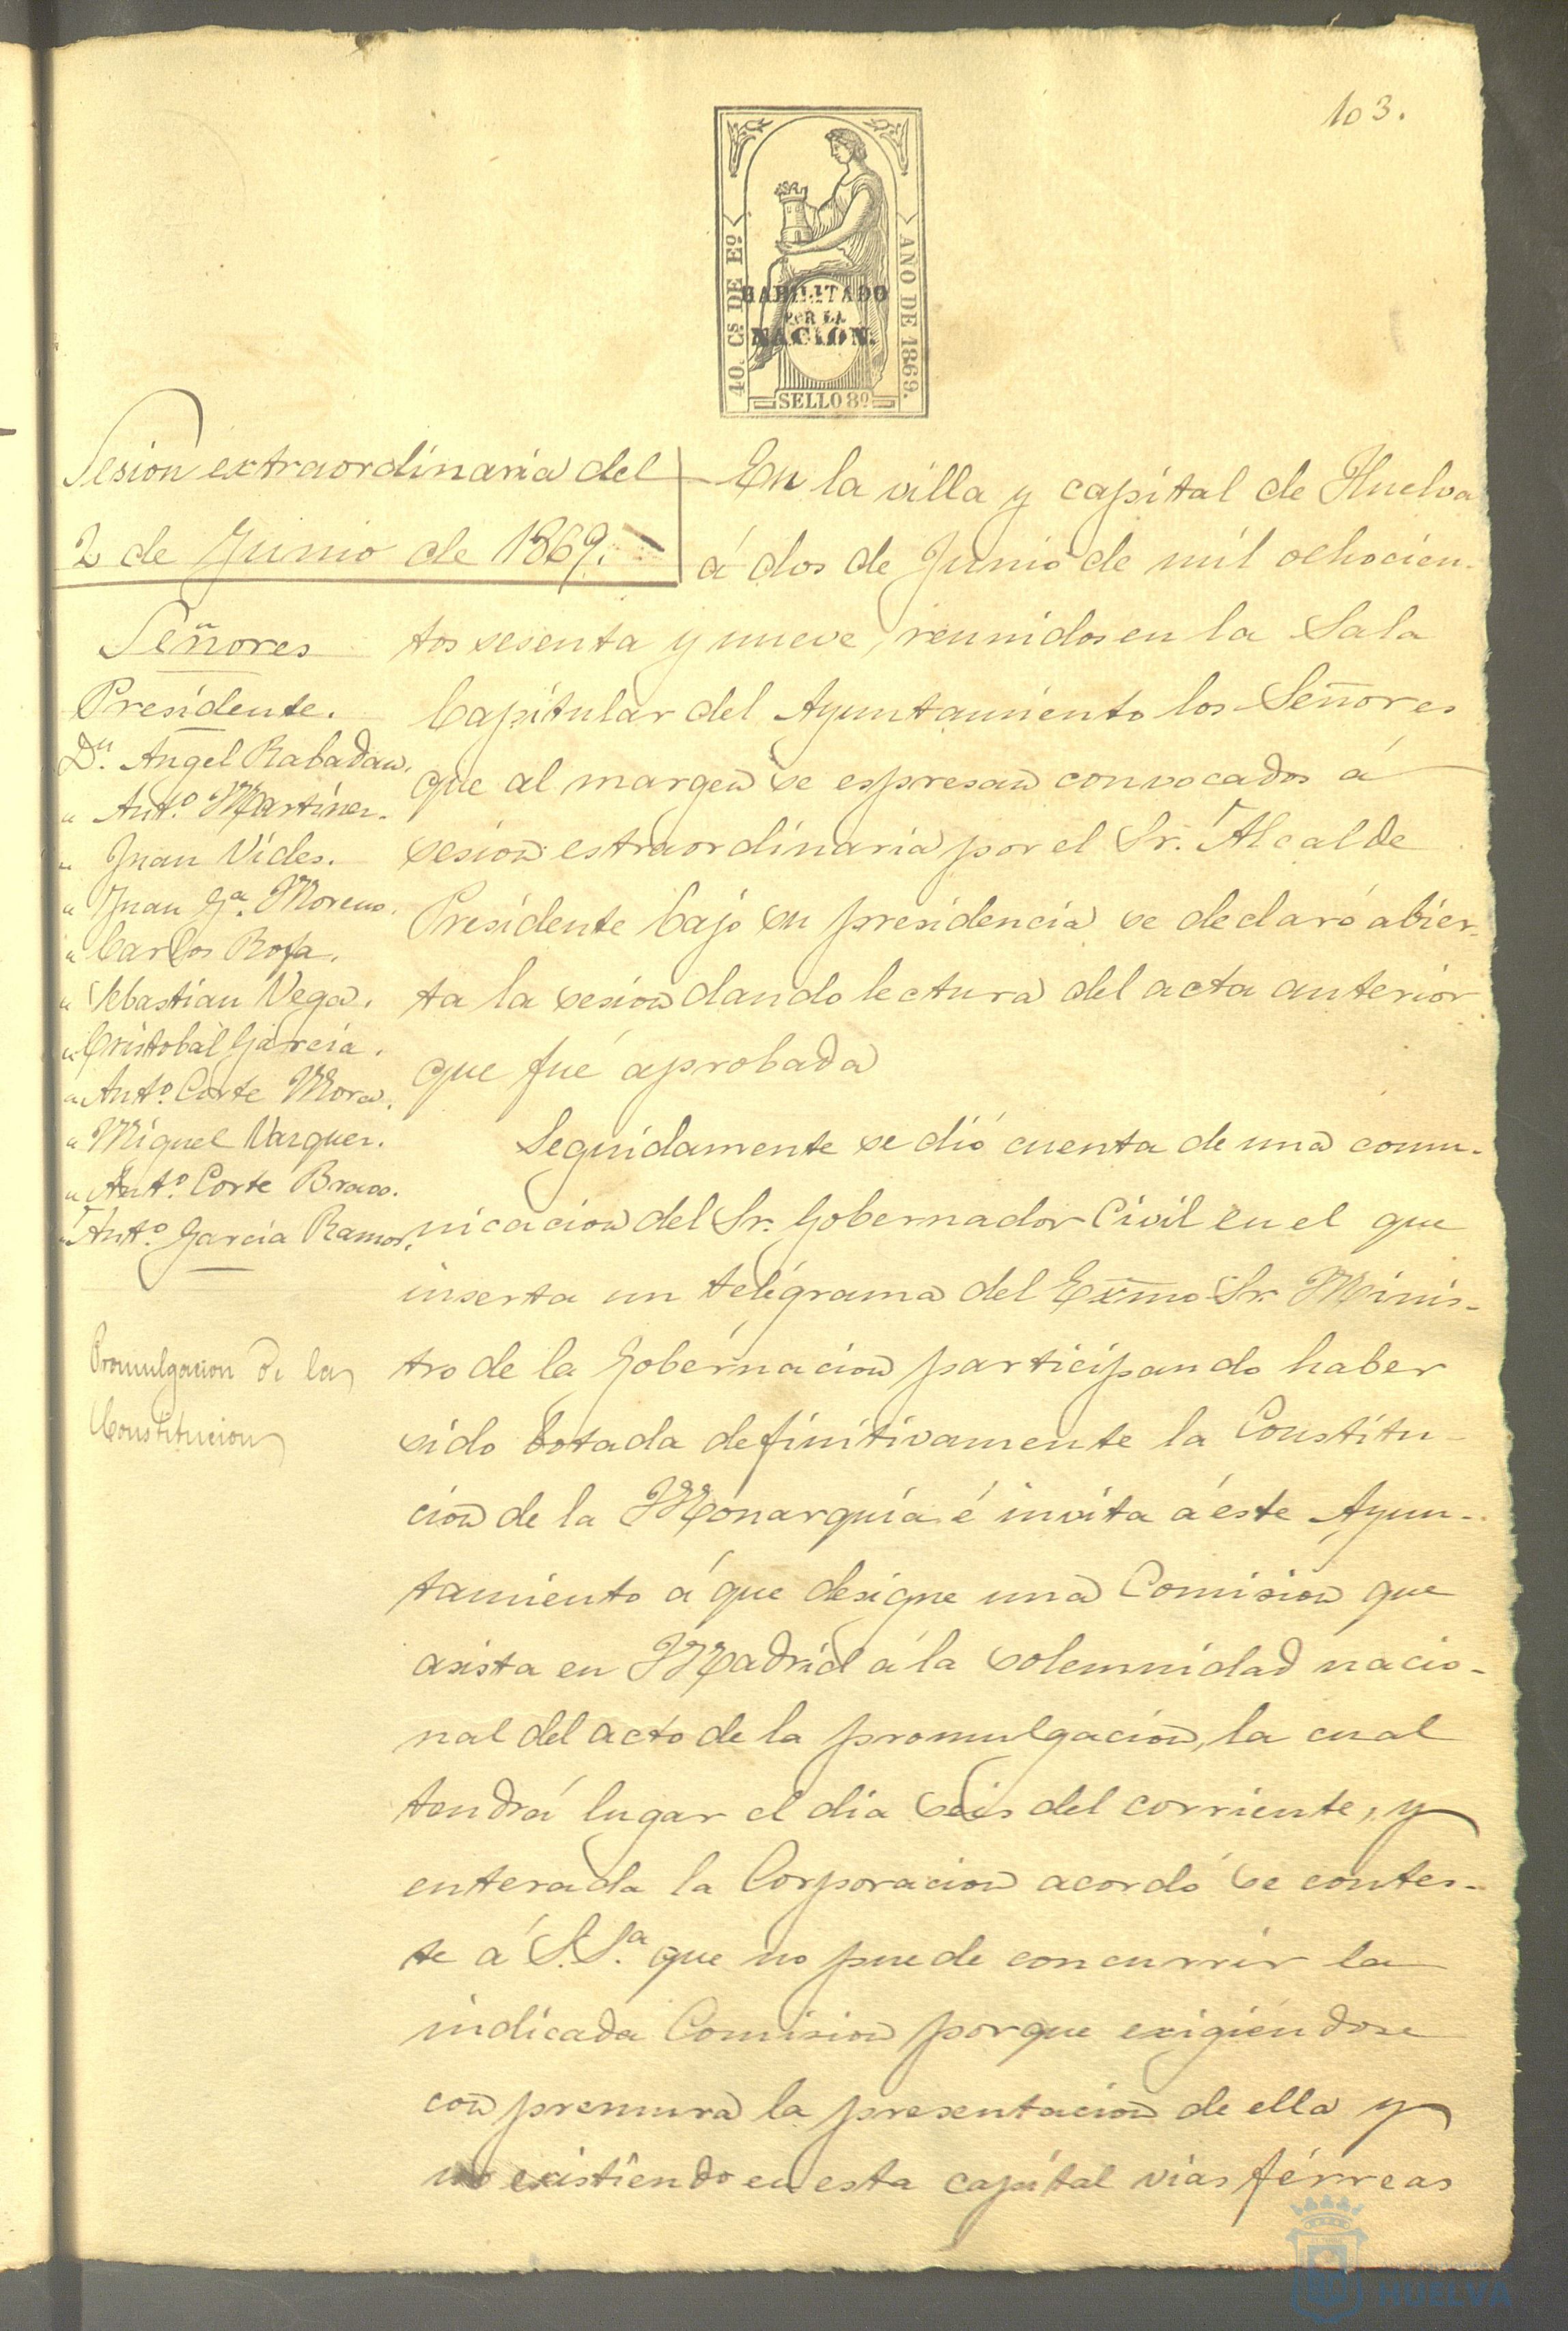 103.
40. Cs DE Eº
AÑO DE 1869.
HABILITADO
POR LA
NACION.
SELLO 8º
Sesion extraordinaria del
2 de Junio de 1869.
Señores
Presidente.
Dn. Angel Rabadan.
" Antº. Martinez.
" Juan Vides.
" Juan Gª. Moreno.
" Carlos Rofa.
" Sebastian Vega.
" Cristobal Garcia.
" Antº. Corte Mora.
" Miguel Vazquez.
" Antº. Corte Bravo.
" Antº. Garcia Ramos.
Promulgacion de la
Constitucion
En la villa y capital de Huelva
á dos de Junio de mil ochocien-
tos sesenta y nueve, reunidos en la Sala
Capitular del Ayuntamiento los Señores
que al margen se espresan convocados á
sesion estraordinaria por el Sr. Alcalde
Presidente bajo su presidencia se declaró abier-
ta la sesion dando lectura del acta anterior
que fué aprobada
Seguidamente se dió cuenta de una comu-
nicacion del Sr. Gobernador Civil en el que
inserta un telégrama del Exmo Sr. Minis-
tro de la Gobernacion participando haber
sido botada definitivamente la Constitu-
cion de la Monarquía é invita á este Ayun-
tamiento á que designe una Comision que
asista en Madrid á la solemnidad nacio-
nal del acto de la promulgacion, la cual
tendrá lugar el dia seis del corriente, y
enterada la Corporacion acordó se contes-
te á S. Sª. que no puede concurrir la
indicada Comision porque exigiéndose
con premura la presentacion de ella y
no existiendo en esta capital vias férreas
HUELVA